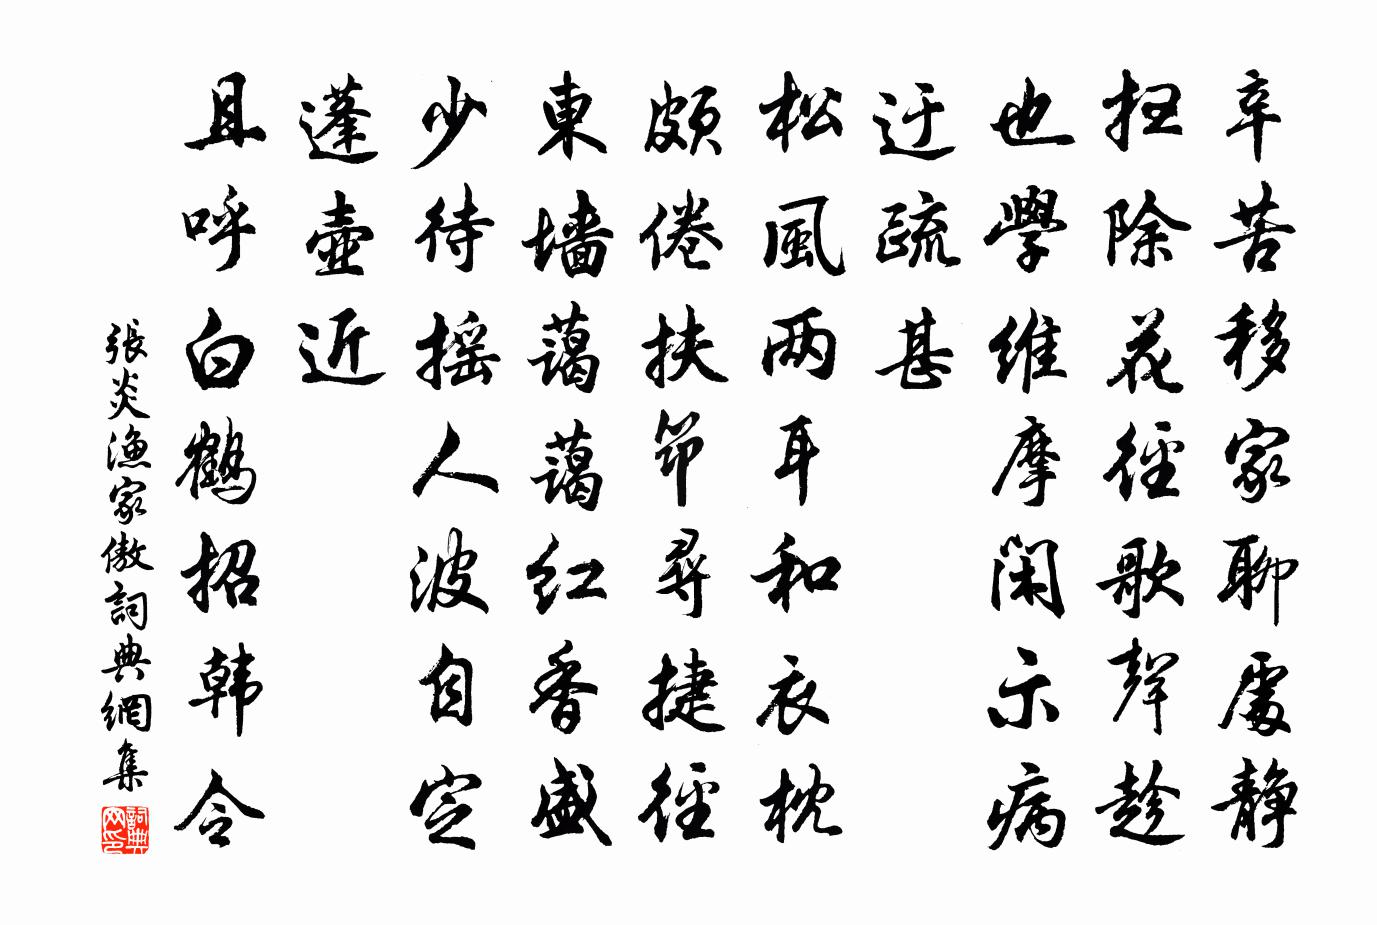 辛苦移家聊處静
扫除花徑歌聲趁
也學维摩闲示病
迂疏甚
松風两耳和衣枕
頗倦扶筇尋捷徑
東墙藹藹红香盛
少待摇人波自定
蓬壺近
且呼白鹤招韩令
張炎漁家傲詞典網集